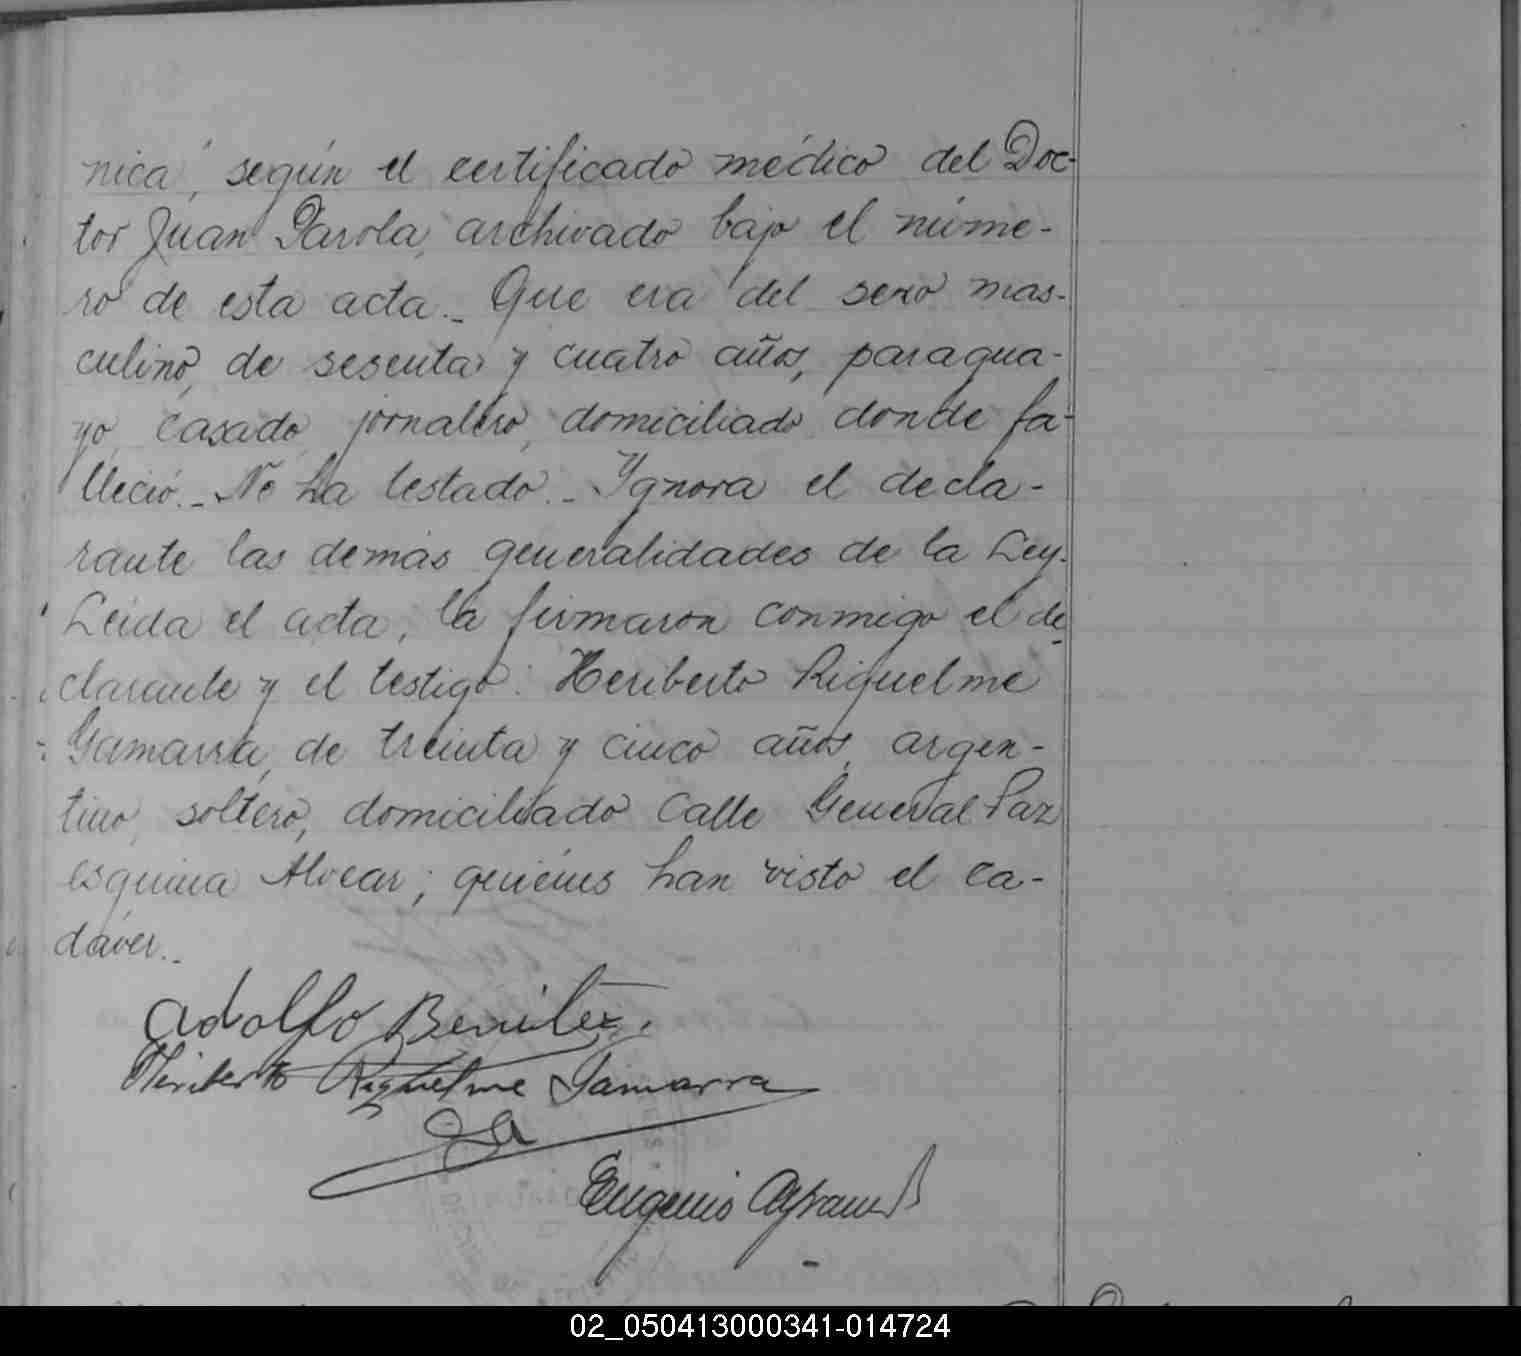 nica", según el certificado médico del Doc-
tor Juan Parola, archivado bajo el núme-
ro de esta acta._ Que era del sexo mas-
culino, de sesenta y cuatro años, paragua-
yo, casado, jornalero, domiciliado donde fa-
lleció._ No ha testado._ Ygnora el decla-
rante las demás generalidades de la Ley.
Leída el acta, la firmaron conmigo el de
clarante y el testigo: Heriberto Riquelme
Gamarra, de treinta y cinco años, argen-
tino, soltero, domiciliado Calle General Paz
esquina Alvear; quienes han visto el ca-
dáver._
Adolfo Benitez.
Heriberto Riquelme Gamarra
Eugenio
02_050413000341-014724